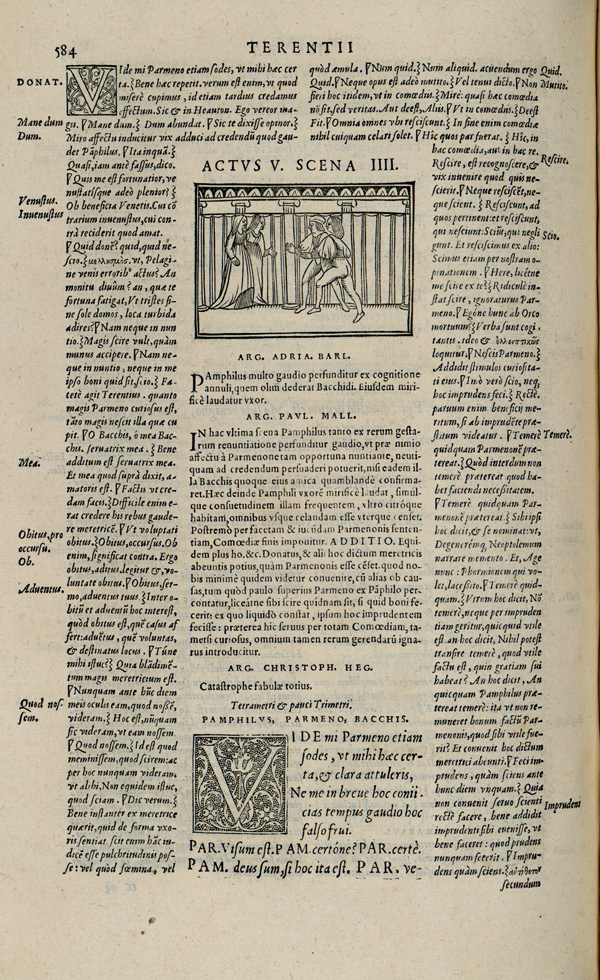 584
TERENTII
DONAT.
VIde mi Parmeno etiam sodes, vt mihi hæc cer
ta. Bene hæc repetit. verum est enim, vt quod
miserè cupimus, id etiam tardius credamus
effectum. Sic & in Heauton. Ego vereor
Mane dum. Dum abundat. Sic te dixisse opinor.
Miro affectu inducitur vix adduci ad credendū quod gau-
det Pāphilus. Ita inquā.
Quasi, iam antè fassus, dico.
Quis me est fortunatior, ve
nustatísque adeò plenior?
Ob beneficia Veneris. Cui cō
trarium inuenustus, cui con-
trà reciderit quod amat.
Quid doné? quid, quid ne-
scio. vt, Pelagi-
ne venis erroribꝰ actus? An
monitu diuûm? an, quæ te
fortuna fatigat, Vt tristes si-
ne sole domos, loca turbida
adires? Nam neque in nun
tio. Magis scire vult, quàm
munus accipere. Nam ne-
que in nuntio, neque in me
ipso boni quid sit, scio. Fa-
cetè agit Terentius. quanto
magis Parmeno curiosus est,
tāto magis nescit illa quæ cu
pit. O Bacchis, ô mea Bac-
chis. seruatrix mea. Bene
additum est seruatrix mea.
Et mea quod suprà dixit, a-
matoris est. Factū vt cre-
dam facis. Difficile enim e-
rat credere his rebus gaude-
re meretricē. Vt voluptati
obitus. Obitus, occursus. Ob
enim, significat contra. Ergo
obitus, aditus, legitur &, vo-
luntate obitus. Obitus, ser-
mo, aduentus tuus. Inter o-
bitū et aduentū hoc interest,
quòd obitus est, quē casus af
fert: aduētus, quē voluntas,
& destinatus locus. Túne
mihi istuc? Quia blādimē-
tum magis meretricium est.
Nunquam ante hūc diem
meis oculis eam, quod nossē,
videram. Hoc est, nūquam
sic videram, vt eam nossem.
Quod nossem. Id est quod
meminissem, quod scirem: ac
per hoc nunquam videram.
vt alibi, Non equidem istuc,
quod sciam. Dic verum.
Bene instanter ex meretrice
quærit, quid de forma vxo-
ris sentiat. scit enim hāc iu-
dicē esse pulchritudinis pos-
se: vel quod fœmina, vel
Mane dum
Dum.
Venustus.
Inuenustus
Mea.
Obitus, pro
occursu.
Ob.
Aduentus.
Quod nos-
sem.
quòd æmula. Num quid. Num aliquid. acuendum ergo
Quid. Neque opus est adeò mutito. Vel tenus dicto. Non
fieri hoc itidem, vt in comœdiis. Mirè: quasi hæc comœdia
nō sit, sed veritas. Aut deest, Aliis. Vt in comœdiis. Deest
Fit. Omnia omnes vbi resciscunt. In fine enim comœdiæ
nihil cuiquam celari solet. Hîc quos par fuerat. Hîc, in
hac comœdia, aut in hac re.
Rescire, est recognoscere, &
vix inuenire quod quis ne-
scierit. Neque resciscēt, ne-
que scient. Resciscunt, ad
quos pertinent: et resciscunt,
qui nesciunt: Sciūt, qui negli
gunt. Et resciscimus ex alio:
Scimus etiam per nostram o-
pinationem. Here, licétne
me scire ex te? Ridiculè in-
stat scire, ignoraturus Par-
meno. Egóne hunc ab Orco
mortuum? Verba sunt cogi-
tantis. ideo & ἐλλειπτικῶς
loquitur. Nescis Parmeno.
Addidit stimulos curiosita-
ti eius. Imò verò scio, neq́;
hoc imprudens feci. Rectè.
paruum enim beneficij me-
ritum, si ab imprudēte præ-
stitum videatur. Temerè
quidquam Parmenonē præ-
tereat. Quòd interdum non
temerè prætereat quod ha-
bet faciendi necessitatem.
Temerè quidquam Par-
menonē prætereat. Sibi ipsi
hoc dicit, & se nominat: vt,
Degenerēmq́; Neoptolemum
narrare memento. Et, Age
nunc: Phormionem qui vo-
let, lacessito. Temerè quid-
quam. Vtrum hoc dicit, Nō
temerè, neque per impruden
tiam geritur, quicquid vtile
est. an hoc dicit, Nihil potest
transire temerè, quod vtile
factu est, quin gratiam sui
habeat? An hoc dicit, An
quicquam Pamphilus præ-
tereat temerè: ita vt non re-
muneret bonum factū Par-
menonis, quod sibi vtile fue-
rit? Et conuenit hoc dictum
meretrici abeunti. Feci im-
prudens, quàm sciens ante
hunc diem vnquam. Quia
non conuenit seruo scienti
rectè facere, bene addidit
imprudenti sibi cuenisse, vt
bene faceret: quod prudens
nunquam fecerit. Impru-
dens quàm sciens.
secundum
Quid.
Mutito.
Rescire.
Scio.
Temerè.
Imprudent
ACTVS V. SCENA IIII.
ARG. ADRIA. BARL.
PAmphilus multo gaudio perfunditur ex cognitione
annuli, quem olim dederat Bacchidi. Eiusdem miri-
ficè laudatur vxor.
ARG. PAVL. MALL.
IN hac vltima scena Pamphilus tanto ex rerum gesta-
rum renuntiatione perfunditur gaudio, vt præ nimio
affectu à Parmenone tam opportuna nuntiante, neuti-
quam ad credendum persuaderi potuerit, nisi eadem il-
la Bacchis quoque eius amica quamblandè confirma-
ret. Hæc deinde Pamphili vxorē mirificè laudat, simul-
que consuetudinem illam frequentem, vltro citróque
habitam, omnibus vsque celandam esse vterque censet.
Postremò per facetam & iucūdam Parmenonis senten-
tiam, Comœdiæ finis imponitur. ADDITIO. Equi-
dem plus ho, &c. Donatus, & alij hoc dictum meretricis
abeuntis potius, quàm Parmenonis esse cēset. quod no-
bis minimè quidem videtur conuenire, cū alias ob cau-
sas, tum quòd paulo superius Parmeno ex Pāphilo per-
contatur, liceátne sibi scire quidnam sit, si quid boni fe-
cerit: ex quo liquidò constat, ipsum hoc imprudentem
fecisse: præterea hic seruus per totam Comœdiam, ta-
metsi curiosus, omnium tamen rerum gerendarū igna-
rus introducitur.
ARG. CHRISTOPH. HEG.
Catastrophe fabulæ totius.
Tetrametri & pauci Trimetri.
PAMPHILVS, PARMENO, BACCHIS.
VIDE mi Parmeno etiam
sodes, vt mihi hæc cer-
ta, & clara attuleris,
Ne me in breue hoc conii-
cias tempus gaudio hoc
falso frui.
PAR. Visum est. PAM. certóne? PAR. certè.
PAM. deus sum, si hoc ita est. PAR. ve-